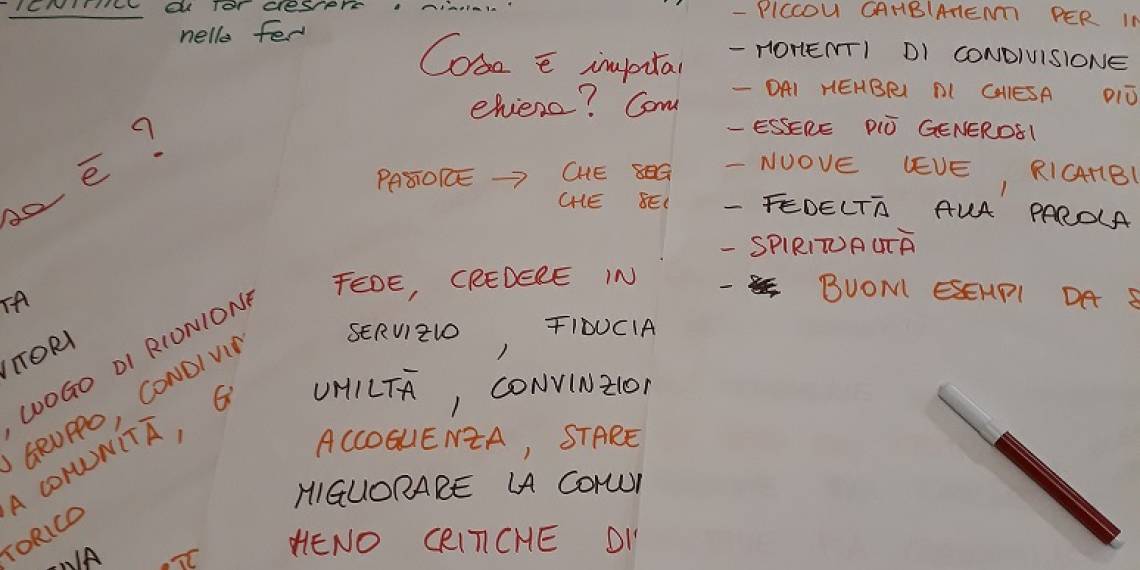 di far crescere
nella fed
è ?
TA
VITORI
, LUOGO DI RIUNIONE
GRUPPO, CONDIVI
A COMUNITÀ, G
TORICO
IVA
Cosa è importa
chiesa? Com
PASTORE → CHE SEG
CHE SE
FEDE, CREDERE IN
SERVIZIO, FIDUCIA
UMILTÀ, CONVINZIO
ACCOGLIENZA, STARE
MIGLIORARE LA COMU
MENO CRITICHE DI
- PICCOLI CAMBIAMENTI PER IN
- MOMENTI DI CONDIVISIONE
- DAI MEMBRI DI CHIESA PIÙ
- ESSERE PIÙ GENEROSI
- NUOVE LEVE, RICAMBI
- FEDELTÀ ALLA PAROLA
- SPIRITUALITÀ
- BUONI ESEMPI DA S